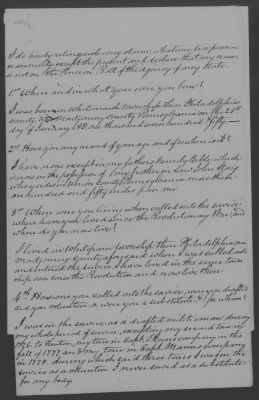 I do hereby relinquish every claim whatever to a pension
or annuity except the present and declare that my name
is not on the Pension Roll of the Agency of any State.
1st When and in what year were you born?
I was born in Whitemarsh township then Philadelphia
county Montgomery county Pennsylvania on the 25th
day of January AD one thousand seven hundred fifty
2nd Have you any record of your age and if so where is it?
I have none except in my fathers family Bible which
is now in the possession of my brother in law John
who resides in Union County Pennsylvania more than
one hundred and fifty miles from me
3rd Where were you living when called into the service
where have you lived since the Revolutionary War and
where do you now live?
I lived in Whitpain township then Philadelphia now
Montgomery county aforesaid when I was called into
and entered the service. I have lived in the same town
ship ever since the Revolution and now live there
4th How were you called into the service, were you drafted
did you volunteer or were you a substitute & for whom?
I was in the service as a drafted militia man during
my whole period of service, excepting my second tour in
1776 to Trenton, my tour in Capt company in the
fall of 1777 and my tour in Capt company
in 1778 during which said three tours I was in the
service as a volunteer. I never served as a substitute
for any body.